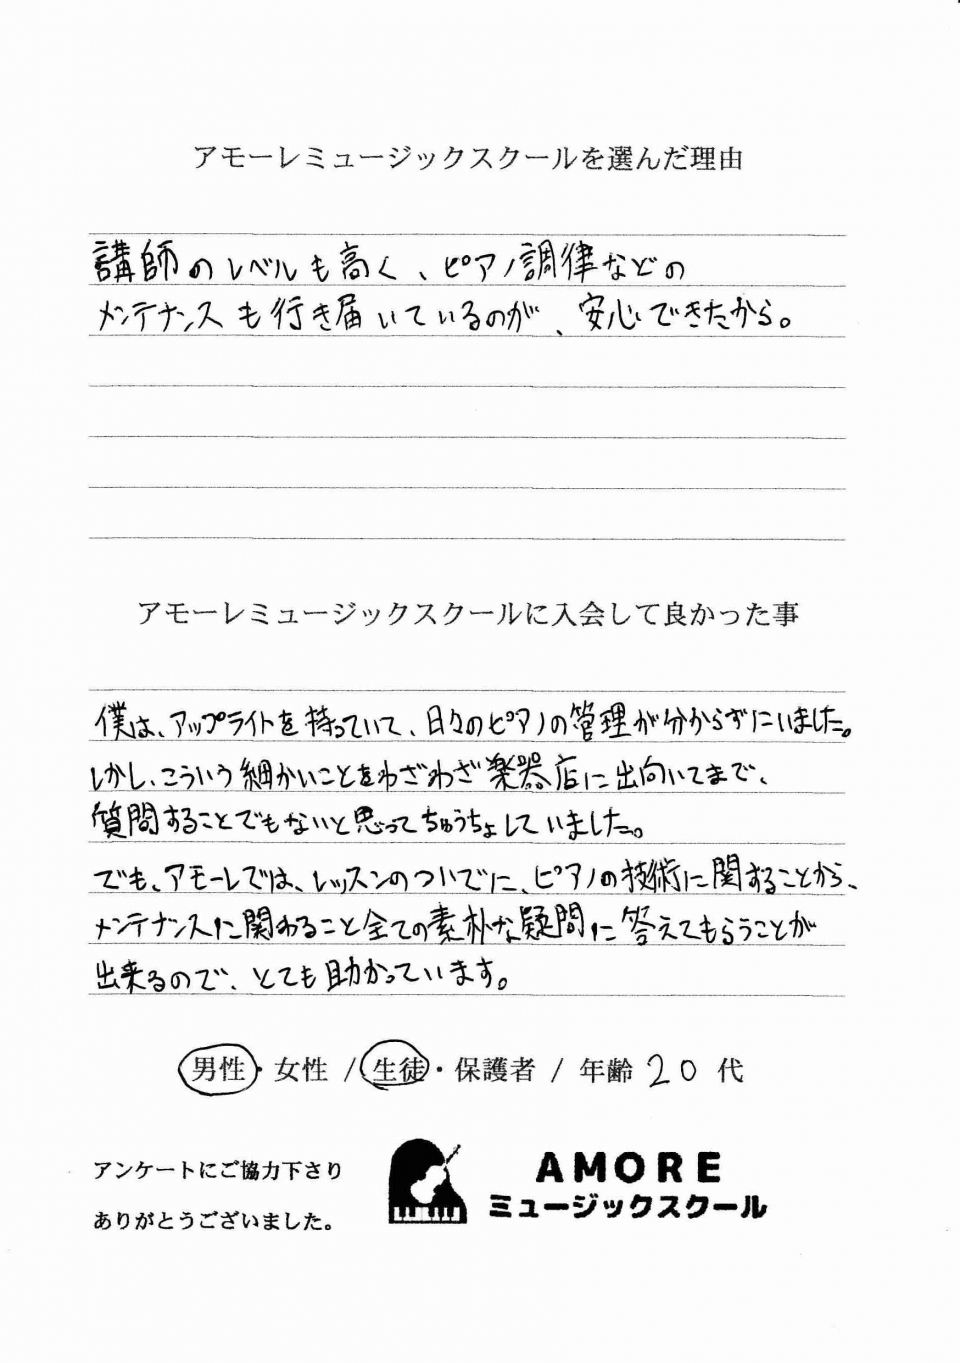 アモーレミュージックスクールを選んだ理由
講師のレベルも高く、ピアノ調律などの
メンテナンスも行き届いているのが、安心できたから。
アモーレミュージックスクールに入会して良かった事
僕は、アップライトを持っていて、日々のピアノの管理が分からずにいました。
しかし、こういう細かいことをわざわざ楽器店に出向いてまで、
質問することでもないと思ってちゅうちょしていました。
でも、アモーレでは、レッスンのついでに、ピアノの技術に関することから、
メンテナンスに関わること全ての素朴な疑問に答えてもらうことが
出来るので、とても助かっています。
男性・女性 / 生徒・保護者 / 年齢 20 代
アンケートにご協力下さり
ありがとうございました。
AMORE
ミュージックスクール